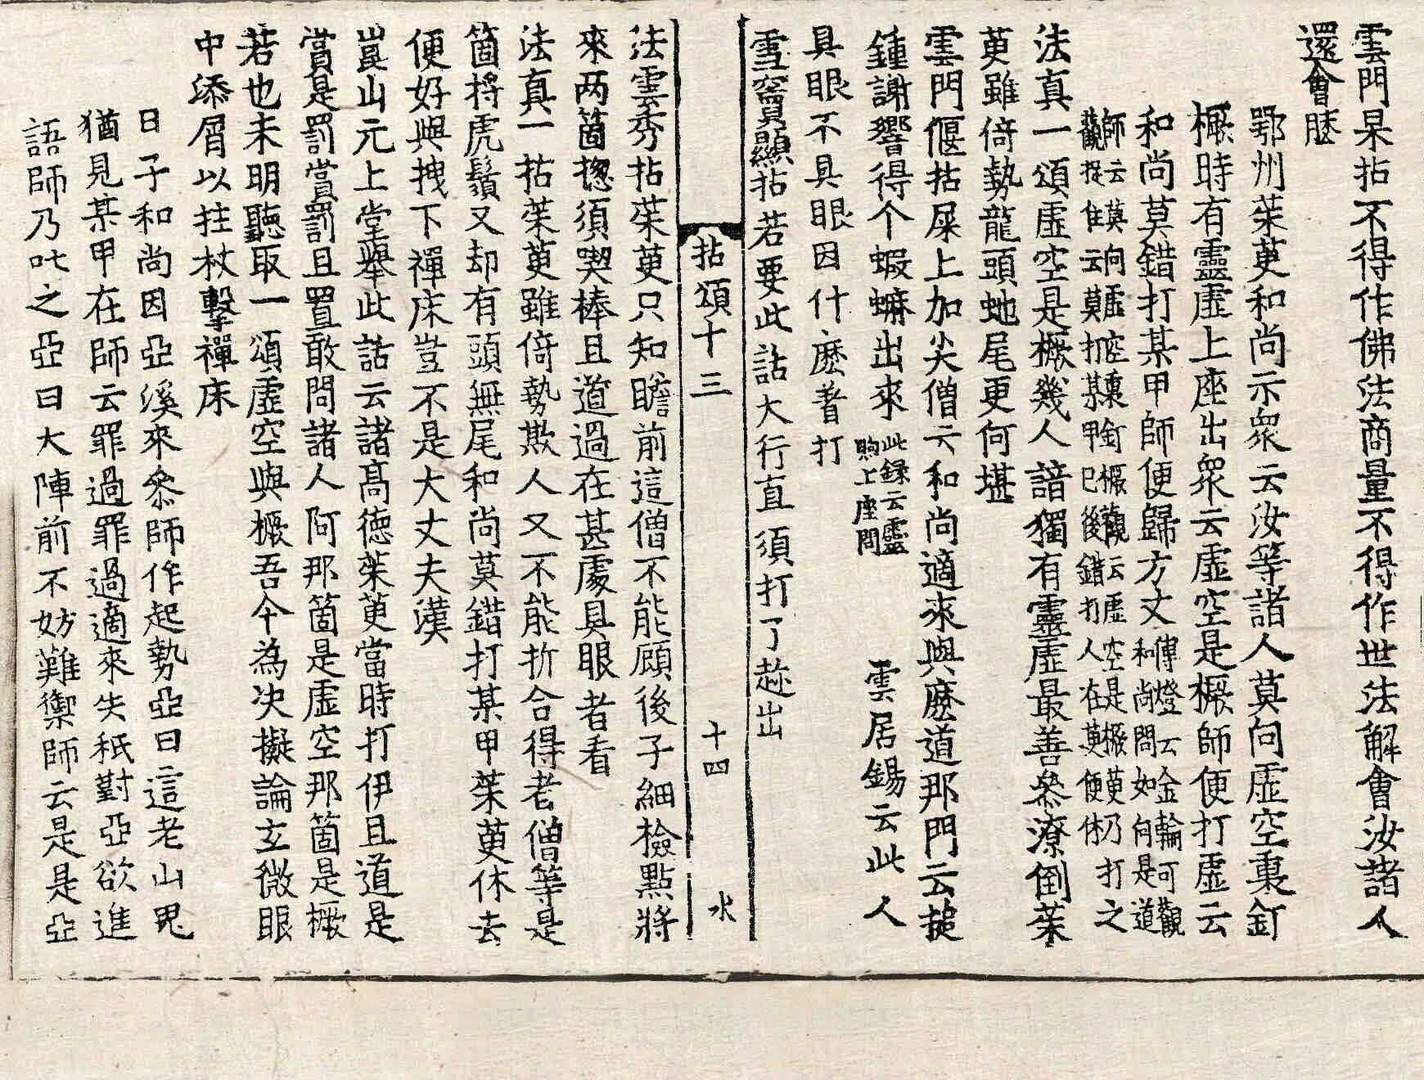 雲門杲拈不得作佛法商量不得作世法解會汝諸人
還會麽
鄂州茱萸和尚示衆云汝等諸人莫向虛空裏釘
橛時有靈虛上座出衆云虛空是橛師便打虛云
和尚莫錯打某甲師便歸方丈
傳燈云金輪可觀
和尚問如何是道
師云莫向虛空裏釘橛觀云虛空是橛萸乃打之
觀捉住云莫打某甲已後錯打人在萸便休
法真一頌虛空是橛幾人諳獨有靈虛最善叅潦倒茱
萸雖倚勢龍頭虵尾更何堪
雲門偃拈屎上加尖僧云和尚適來與麽道那門云搥
鍾謝響得个蝦蟆出來
此録云靈
煦上座問
雲居錫云此人
具眼不具眼因什麽着打
雪竇顯拈若要此話大行直須打了趂出
拈頌十三
十四
水
法雲秀拈茱萸只知瞻前這僧不能顧後子細檢點將
來两箇揔須喫棒且道過在甚處具眼者看
法真一拈茱萸雖倚勢欺人又不能折合得老僧等是
箇捋虎鬚又却有頭無尾和尚莫錯打某甲茱萸休去
便好與拽下禪床豈不是大丈夫漢
崑山元上堂擧此話云諸高德茱萸當時打伊且道是
賞是罰賞罰且置敢問諸人阿那箇是虛空那箇是橛
若也未明聽取一頌虛空與橛吾今為决擬論玄微眼
中添屑以拄杖擊禪床
日子和尚因亞溪來叅師作起勢亞曰這老山鬼
猶見某甲在師云罪過罪過適來失秖對亞欲進
語師乃叱之亞曰大陣前不妨難禦師云是是亞